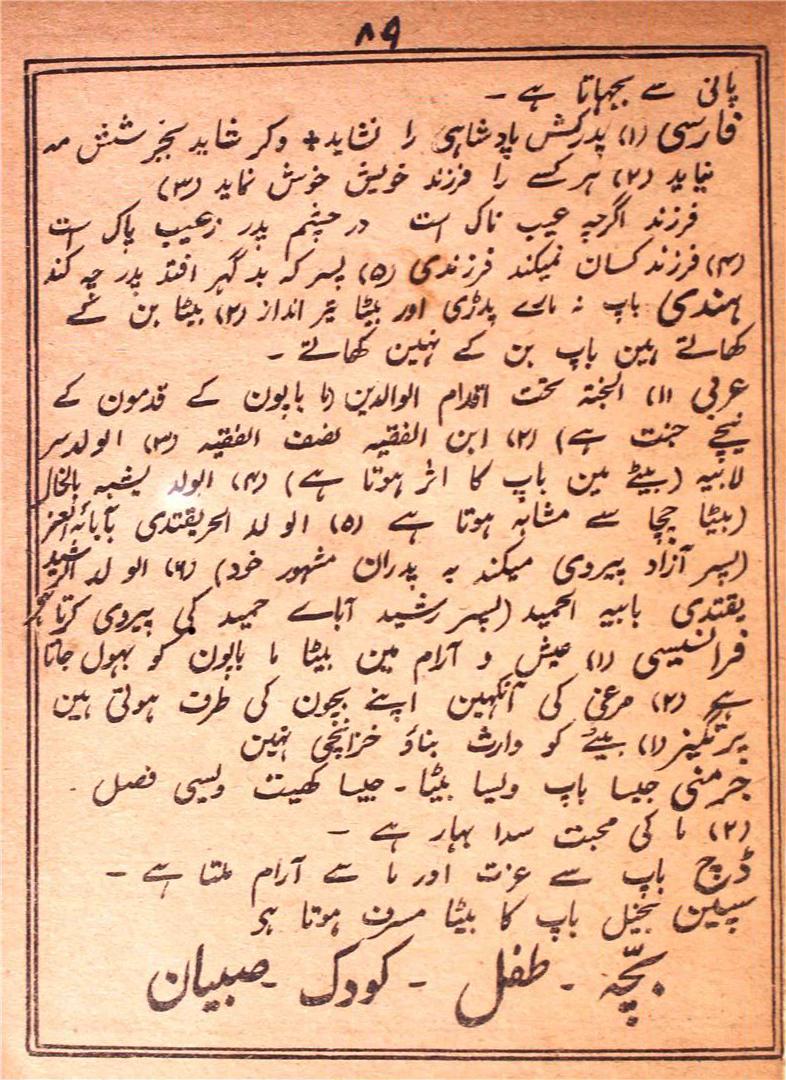 ۸۹
پانی سے بجہاتا ہے ۔
فارسی (۱) پدرکش پادشاہی را نشاید + وگر شاید بجز شش مہ
نیاید (۲) ہر کسے را فرزند خویش خوش نماید (۳)
فرزند اگرچہ عیب ناک است در چشم پدر زعیب پاک است
(۴) فرزند کسان نمیکند فرزندی (۵) پسر کہ بد گہر افتد پدر چہ کند
ہندی باپ نہ مارے پدڑی اور بیٹا تیر انداز (۲) بیٹا بن کے
کھاتے ہین باپ بن کے نہین کھاتے ۔
عربی (۱) الجنۃ تحت اقدام الوالدین (ما باپون کے قدمون کے
نیچے جنت ہے) (۲) ابن الفقیہ نصف الفقیہ (۳) الولد سر
لابیہ (بیٹے مین باپ کا اثر ہوتا ہے) (۴) الولد یشبہ بالخال
(بیٹا چچا سے مشابہ ہوتا ہے (۵) الولد الحر یقتدی بآبائہ الغر
(پسر آزاد پیروی میکند بہ پدران مشہور خود) (۶) الولد الرشید
یقتدی بابیہ الحمید (پسر رشید آباے حمید کی پیروی کرتا ہے
فرانسیسی (۱) عیش و آرام مین بیٹا ما باپون کو بہول جاتا
ہے (۲) مرغی کی آنکہین اپنے بچون کی طرف ہوتی ہین
پرتگیز (۱) بیٹے کو وارث بناؤ خزانچی نہین
جرمنی جیسا باپ ویسا بیٹا ۔ جیسا کھیت ویسی فصل ۔
(۲) ما کی محبت سدا بہار ہے ۔
ڈچ باپ سے عزت اور ما سے آرام ملتا ہے ۔
سپین بخیل باپ کا بیٹا مسرف ہوتا ہی
بچّہ ۔ طفل ۔ کودک ۔ صبیان